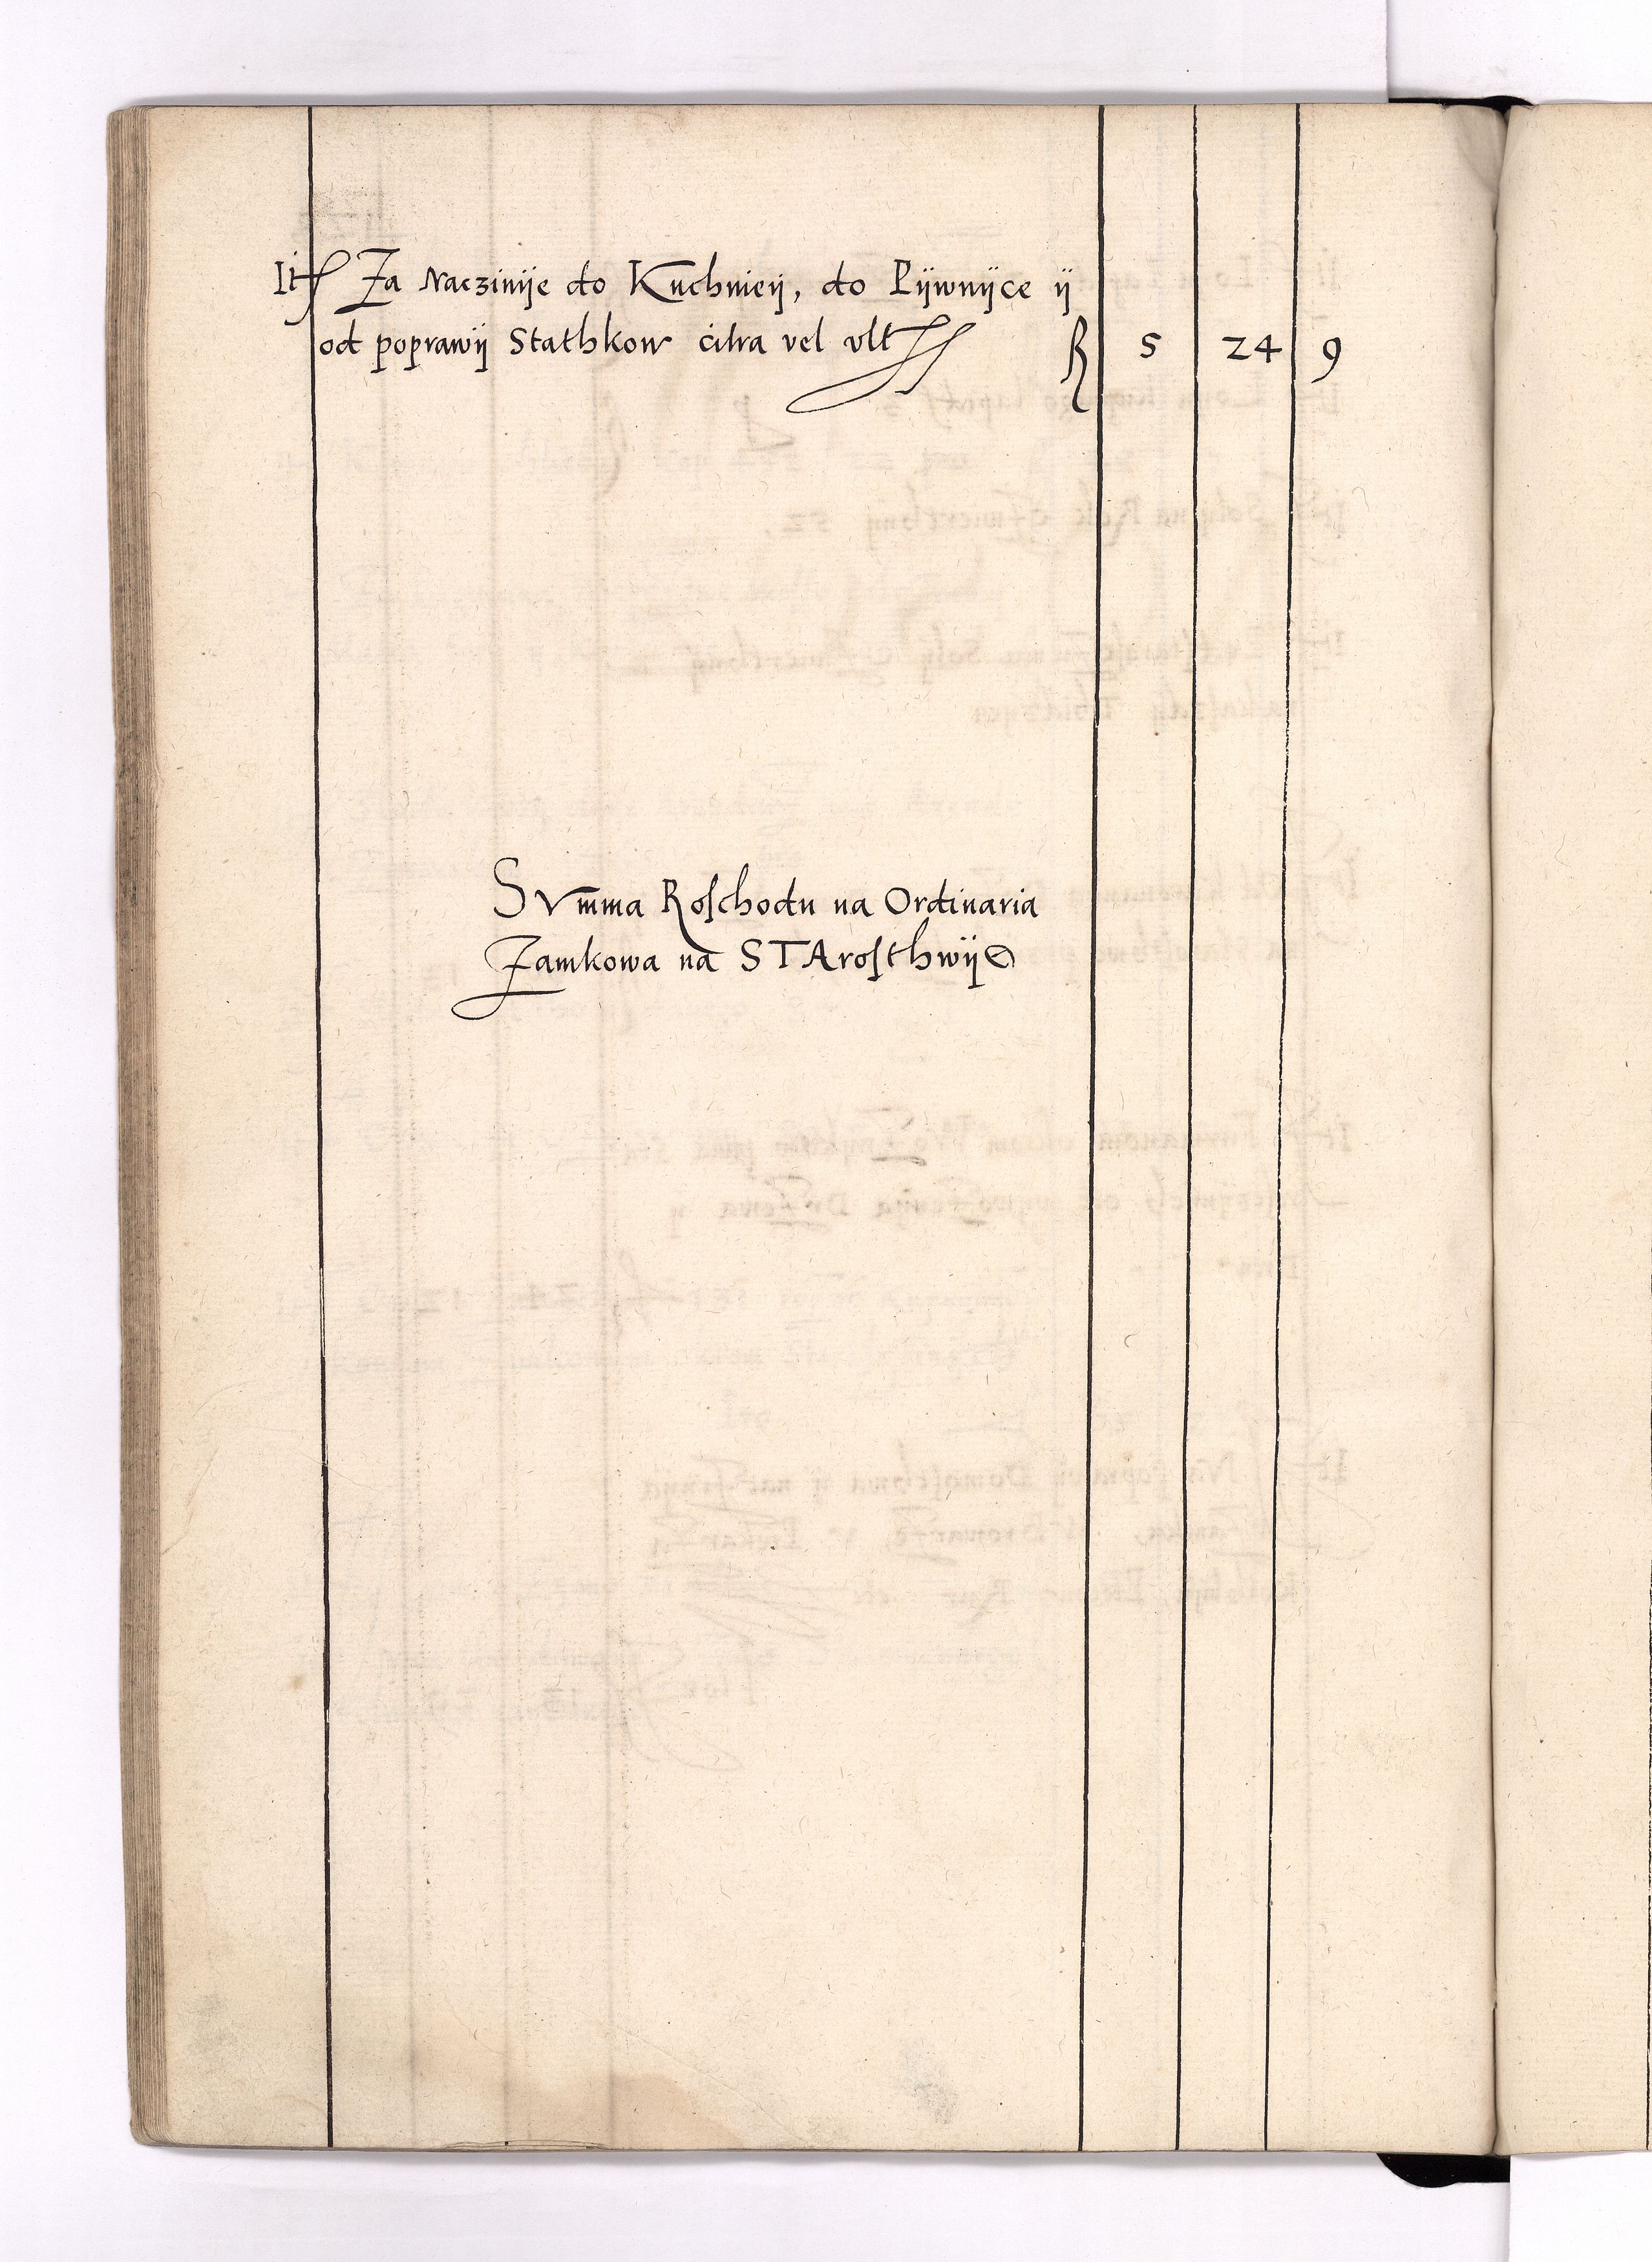 It Za Naczinije do Kuchnieij, do Pijwnijce ij
od poprawij Stathkow citra vel vlt R 5 24 9
SVmma Roschodu na Ordinaria
Zamkowa na STArosthwije